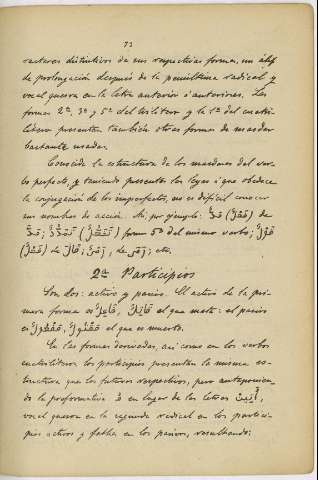 73
racteres distintivos de sus respectivas formas, un álif
de prolongación después de la penúltima radical y
vocal quesra en la letra anterior ó anteriores. Las
formas 2ª, 3ª y 5ª del trilítero y la 1ª del cuatri-
lítero presentan también otras formas de masdar
bastante usadas.
Conocida la estructura de los masdares del ver-
bo perfecto, y teniendo presentes las leyes á que obedece
la conjugación de los imperfectos, no es difícil conocer
sus nombres de acción. Así, por ejemplo: مَدٌّ (فَعْلٌ) de
مَدَّ; تَمَدُّدٌ (تَفَعُّلٌ) forma 5ª del mismo verbo; قَوْلٌ
(فَعْلٌ) de قَالَ; رَمْىٌ, de رَمَى; etc.
2º Participios
Son dos: activo y pasivo. El activo de la pri-
mera forma es فَاعِلٌ, قَاتِلٌ el que mata: el pasivo
es مَفْعُولٌ, مَقْتُولٌ el que es muerto.
En las formas derivadas, así como en los verbos
cuadrilíteros los participios presentan la misma es-
tructura que los futuros respectivos, pero anteponien-
do la preformativa مُ en lugar de las letras أَنَيْتُ,
vocal quesra en la segunda radical en los partici-
pios activos y fatha en los pasivos, resultando: